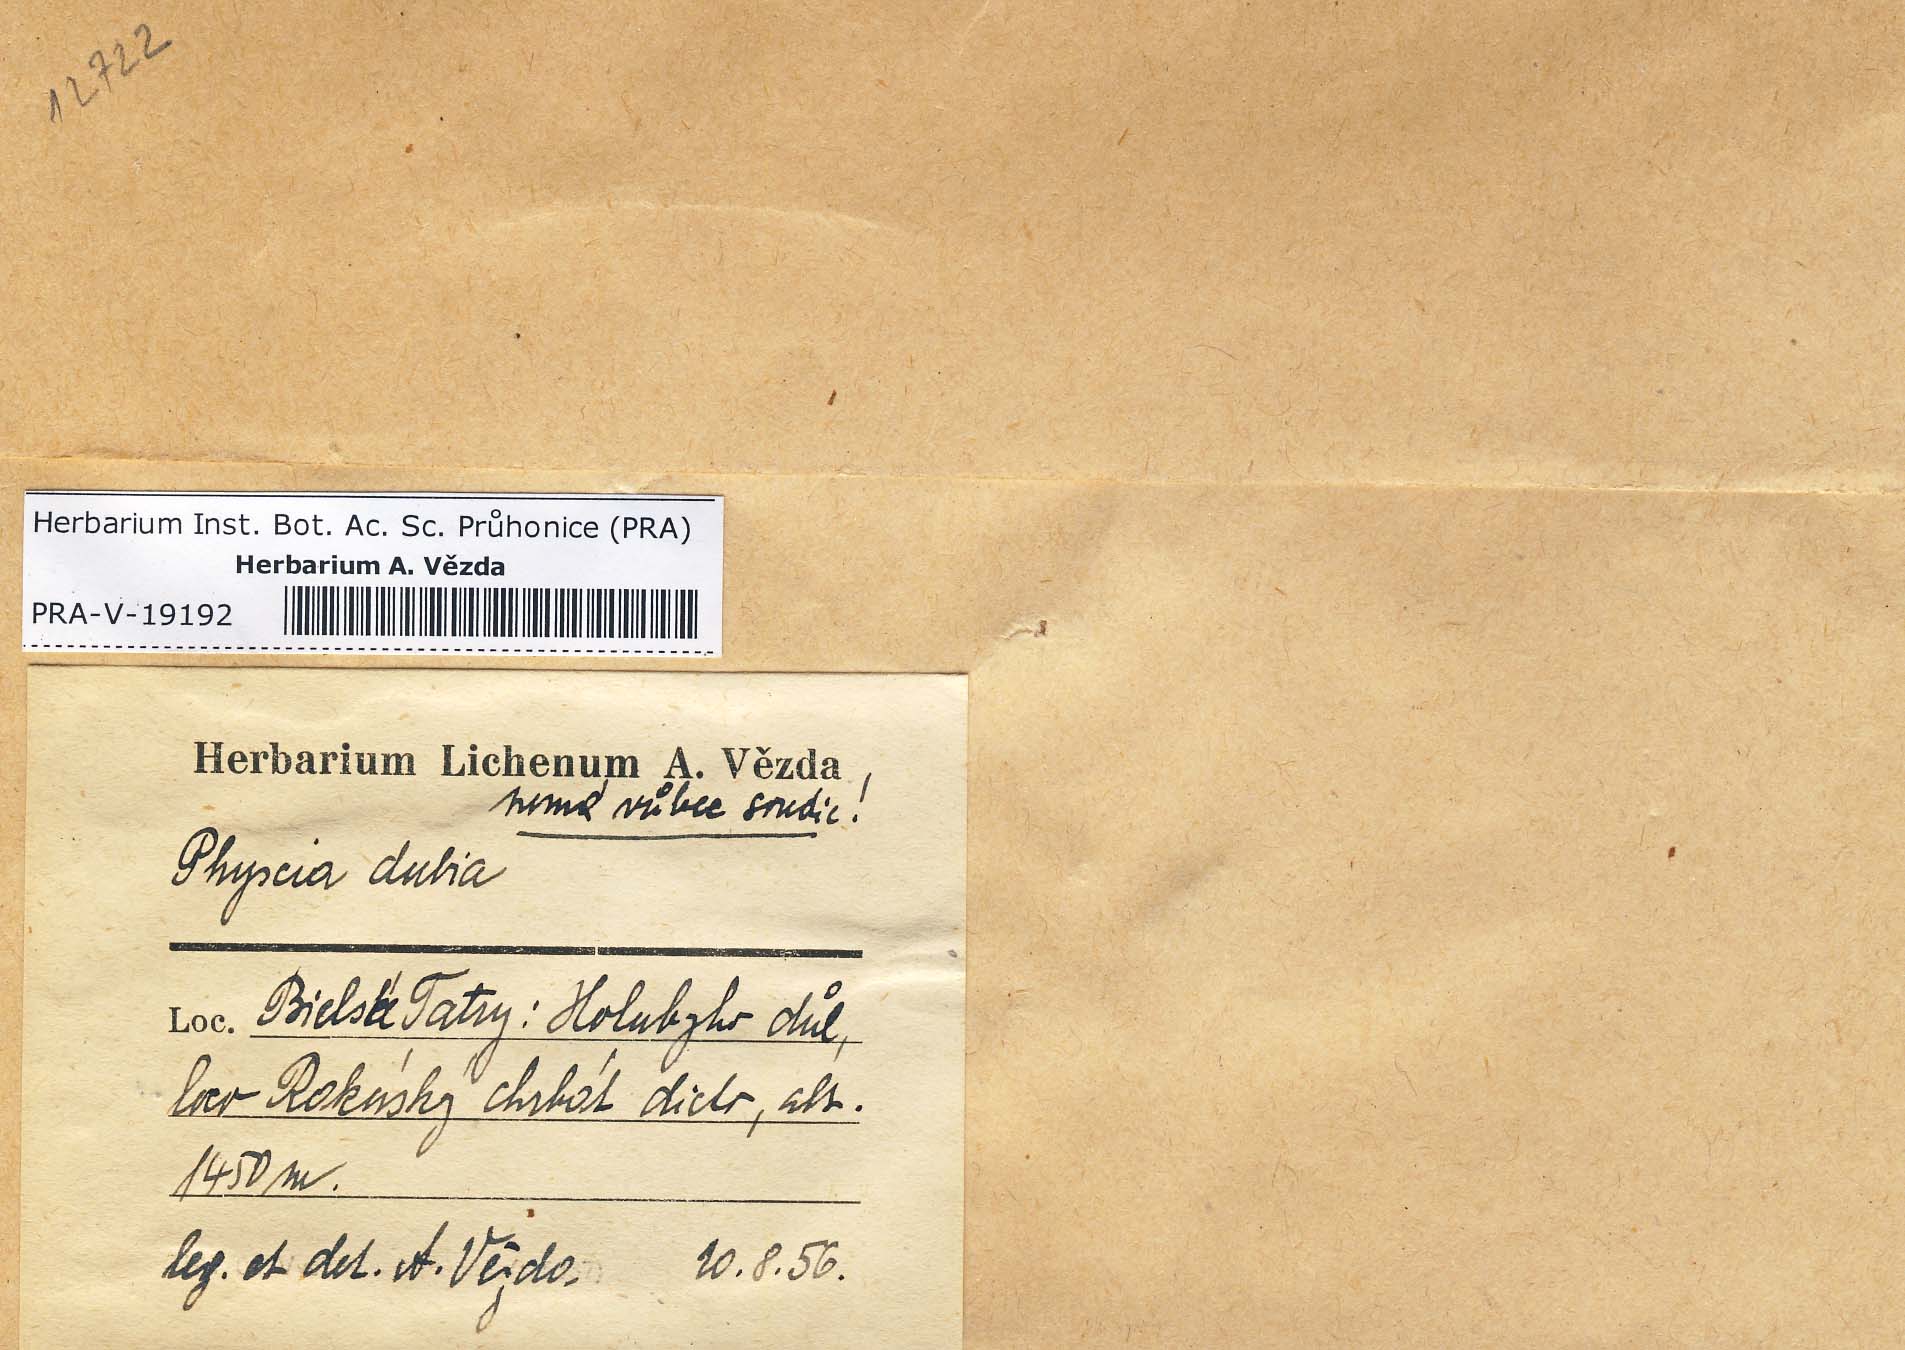 12722
Herbarium Inst. Bot. Ac. Sc. Průhonice (PRA)
Herbarium A. Vězda
PRA-V-19192
Herbarium Lichenum A. Vězda
nemá vůbec soudic!
Physcia dubia
Loc. Bielské Tatry: Holubyho důl,
loco Rakúský chrbát dicto, alt.
1450 m.
leg. et det. A. Vězda 20.8.56.